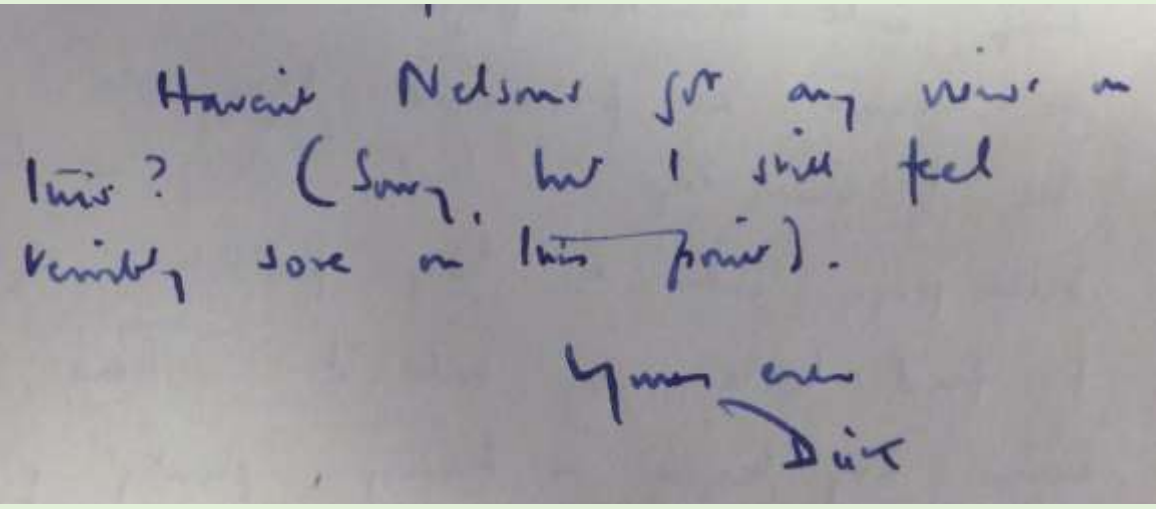 Haven't Nelsons got any views on
this? (Sorry, but I still feel
terribly sore on this point).
Yours ever
Dick